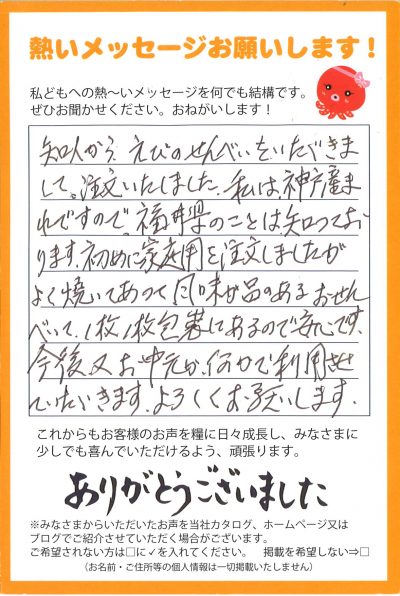 熱いメッセージお願いします！
私どもへの熱〜いメッセージを何でも結構です。
ぜひお聞かせください。おねがいします！
知人から、えびのせんべいをいただきま
して。注文いたしました。私は、神戸産ま
れですので、福井県のことは、知ってお
ります。初めに家庭用を注文しましたが
よく焼いてあって風味が品のあるおせん
べいで、1枚1枚包装にあるので安心です。
今後又お中元か、何かで利用させ
ていただきます。よろしくお願いします。
これからもお客様のお声を糧に日々成長し、みなさまに
少しでも喜んでいただけるよう、頑張ります。
ありがとうございました
※みなさまからいただいたお声を当社カタログ、ホームページ又は
ブログでご紹介させていただく場合がございます。
ご希望されない方は□に✓を入れてください。　掲載を希望しない⇒□
（お名前・ご住所等の個人情報は一切掲載いたしません）